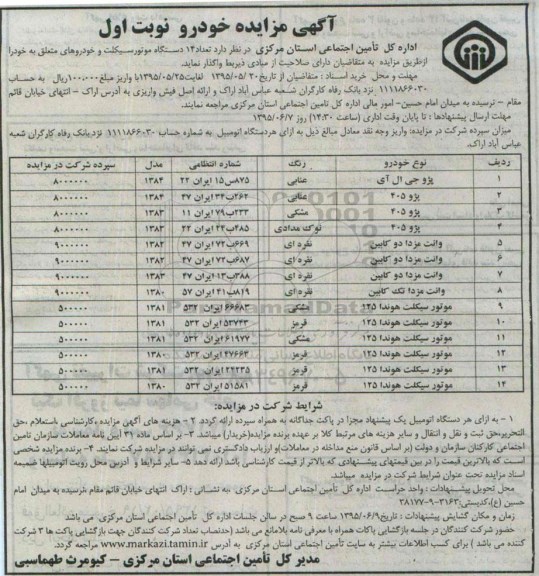 آگهی مزایده خودرو نوبت اول
اداره کل تأمین اجتماعی استان مرکزی در نظر دارد تعداد۱۴ دستگاه موتورسیکلت و خودروهای متعلق به خودرا
ازطریق مزایده به متقاضیان دارای صلاحیت از مبادی ذیربط واگذار نماید.
مهلت و محل خرید اسناد : متقاضیان از تاریخ ۱۳۹۵/۰۵/۲۰ لغایت۱۳۹۵/۰۵/۲۵با واریز مبلغ۱۰۰.۰۰۰ریال به حساب
۱۱۱۱۸۶۶۰۳۰ نزد بانک رفاه کارگران شعبه عباس آباد اراک و ارائه اصل فیش واریزی به آدرس اراک - انتهای خیابان قائم
مقام - نرسیده به میدان امام حسین- امور مالی اداره کل تامین اجتماعی استان مرکزی مراجعه نمایند.
مهلت ارسال پیشنهادها : تا پایان وقت اداری (ساعت ۱۴:۳۰) روز ۱۳۹۵/۰۶/۷
میزان سپرده شرکت در مزایده: واریز وجه نقد معادل مبالغ ذیل به ازای هردستگاه اتومبیل به شماره حساب ۱۱۱۱۸۶۶۰۳۰ نزدبانک رفاه کارگران شعبه
عباس آباد اراک.
ردیف نوع خودرو رنگ شماره انتظامی مدل سپرده شرکت در مزایده
۱ پژو جی ال آی عنابی ۸۷۵س۱۵ ایران ۲۲ ۱۳۸۴ ۸۰۰۰۰۰۰
۲ پژو ۴۰۵ عنابی ۲۶۲ب۳۴ ایران ۴۷ ۱۳۸۴ ۸۰۰۰۰۰۰
۳ پژو ۴۰۵ مشکی ۲۳۳ب۷۹ ایران ۱۱ ۱۳۸۳ ۸۰۰۰۰۰۰
۴ پژو ۴۰۵ نوک مدادی ۲۸۵ب۴۲ ایران ۲۲ ۱۳۸۴ ۸۰۰۰۰۰۰
۵ وانت مزدا دو کابین نقره ای ۶۶۹ب۷۲ ایران ۴۷ ۱۳۸۲ ۹۰۰۰۰۰۰
۶ وانت مزدا دو کابین نقره ای ۶۸۷ب۷۲ ایران ۴۷ ۱۳۸۲ ۹۰۰۰۰۰۰
۷ وانت مزدا دو کابین نقره ای ۳۸۸ب۱۳ ایران ۴۷ ۱۳۸۳ ۹۰۰۰۰۰۰
۸ وانت مزدا تک کابین نقره ای ۸۱۹ب۴۱ ایران ۵۷ ۱۳۸۰ ۹۰۰۰۰۰۰
۹ موتور سیکلت هوندا ۱۲۵ مشکی ۶۶۶۸۳ ایران ۵۳۲ ۱۳۸۱ ۵۰۰۰۰۰
۱۰ موتور سیکلت هوندا ۱۲۵ قرمز ۵۳۷۴۳ ایران ۵۳۲ ۱۳۸۱ ۵۰۰۰۰۰
۱۱ موتور سیکلت هوندا ۱۲۵ مشکی ۶۱۹۷۷ ایران ۵۳۲ ۱۳۸۱ ۵۰۰۰۰۰
۱۲ موتور سیکلت هوندا ۱۲۵ قرمز ۴۷۶۶۳ ایران ۵۳۲ ۱۳۸۰ ۵۰۰۰۰۰
۱۳ موتور سیکلت هوندا ۱۲۵ قرمز ۲۴۲۳۵ ایران ۵۳۲ ۱۳۸۱ ۵۰۰۰۰۰
۱۴ موتور سیکلت هوندا ۱۲۵ قرمز ۵۱۵۸۱ ایران ۵۳۲ ۱۳۸۰ ۵۰۰۰۰۰
شرایط شرکت در مزایده:
۱ - به ازای هر دستگاه اتومبیل یک پیشنهاد مجزا در پاکت جداگانه به همراه سپرده ارائه گردد. ۲ - هزینه های آگهی مزایده ،کارشناسی باستعلام ،حق
التحریر،حق ثبت و نقل و انتقال و سایر هزینه های مرتبط کلا بر عهده برنده مزایده(خریدار) میباشد. ۳- بر اساس ماده ۳۱ آیین نامه معاملات سازمان تامین
اجتماعی کارکنان سازمان و دولت (بر اساس قانون منع مداخله در معاملات)و ارباب دادگستری نمی توانند در مزایده شرکت نمایند. ۴- برنده مزایده شخصی
است که بالاترین قیمت را در بین قیمتهای پیشنهادی که بالاتر از قیمت کارشناسی باشد ارائه دهد ۵- سایر شرایط و آدرس محل رویت اتومبیلها ضمیمه
اسناد مزایده تحت عنوان شرایط شرکت در مزایده میباشد.
محل تحویل پیشنهادات : واحد حراست اداره کل تأمین اجتماعی استان مرکزی به نشانی : اراک انتهای خیابان قائم مقام ،نرسیده به میدان امام
حسین (ع)،کدپستی:۳۸۱۷۷-۹۳۱۶۳
زمان و مکان گشایش پیشنهادات : تاریخ۱۳۹۵/۰۶/۹ ساعت ۹ صبح در سالن جلسات اداره کل تأمین اجتماعی استان مرکزی می باشد
حضور شرکت کنندگان در جلسه بازگشایی پاکات همراه با معرفی نامه بلامانع می باشد (حدنصاب تعداد شرکت کنندگان جهت بازگشایی پاکت ها ۳ شرکت
کننده می باشد ) برای کسب اطلاعات بیشتر به سایت تأمین اجتماعی استان مرکزی به آدرس www.markazi.tamin.ir مراجعه گردد.
مدیر کل تأمین اجتماعی استان مرکزی - کیومرث طهماسبی